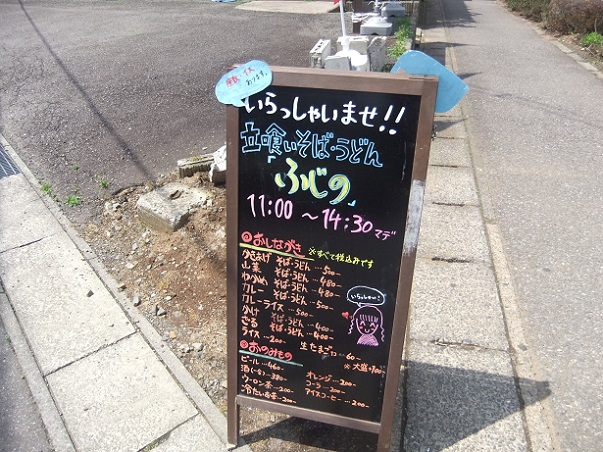 いらっしゃいませ!!
立喰いそば・うどん
「ふじの」
11:00 〜 14:30マデ
おしながき ※すべて税込みです
かきあげ そば・うどん…500-
山菜 そば・うどん…480-
わかめ そば・うどん…480-
カレー そば・うどん…500-
カレーライス…500-
かけ そば・うどん…400-
ざる そば・うどん…400-
ライス…200-
生たまご…60-
いらっしゃ〜い
おのみもの
ビール…460-
ウーロン茶…200-
冷たいお茶…200-
オレンジ…200-
コーラ…200-
アイスコーヒー…200-